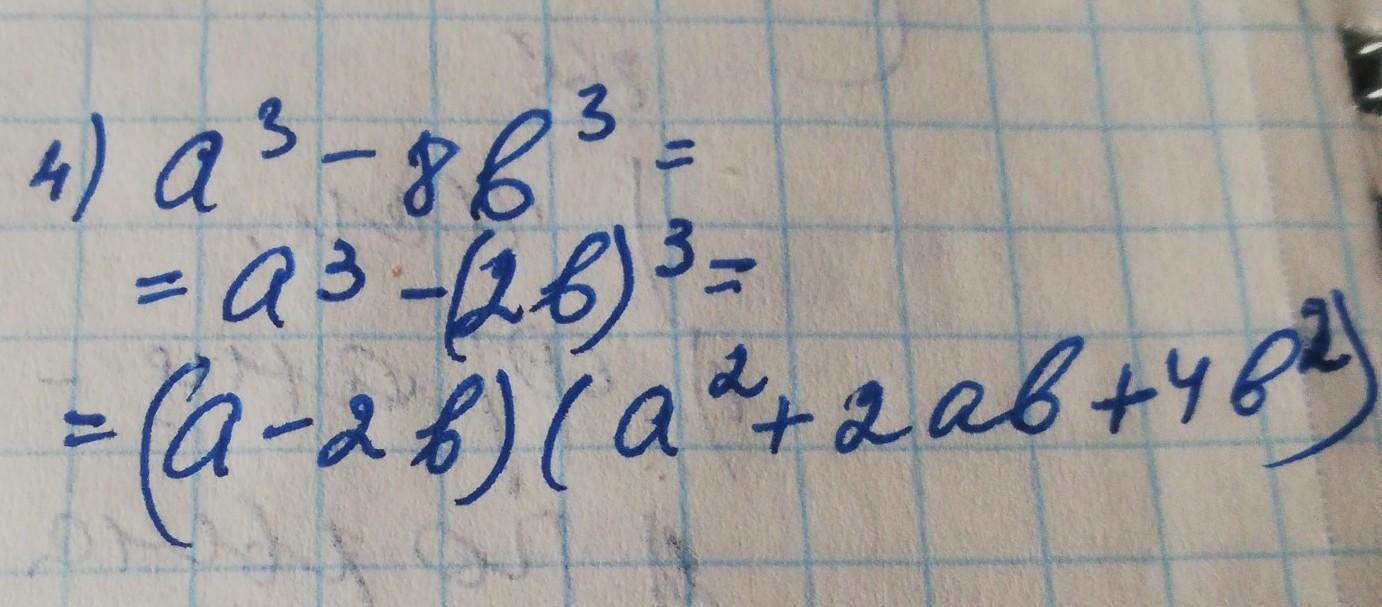 4) a³ - 8b³ =
= a³ - (2b)³ =
= (a - 2b)(a² + 2ab + 4b²)